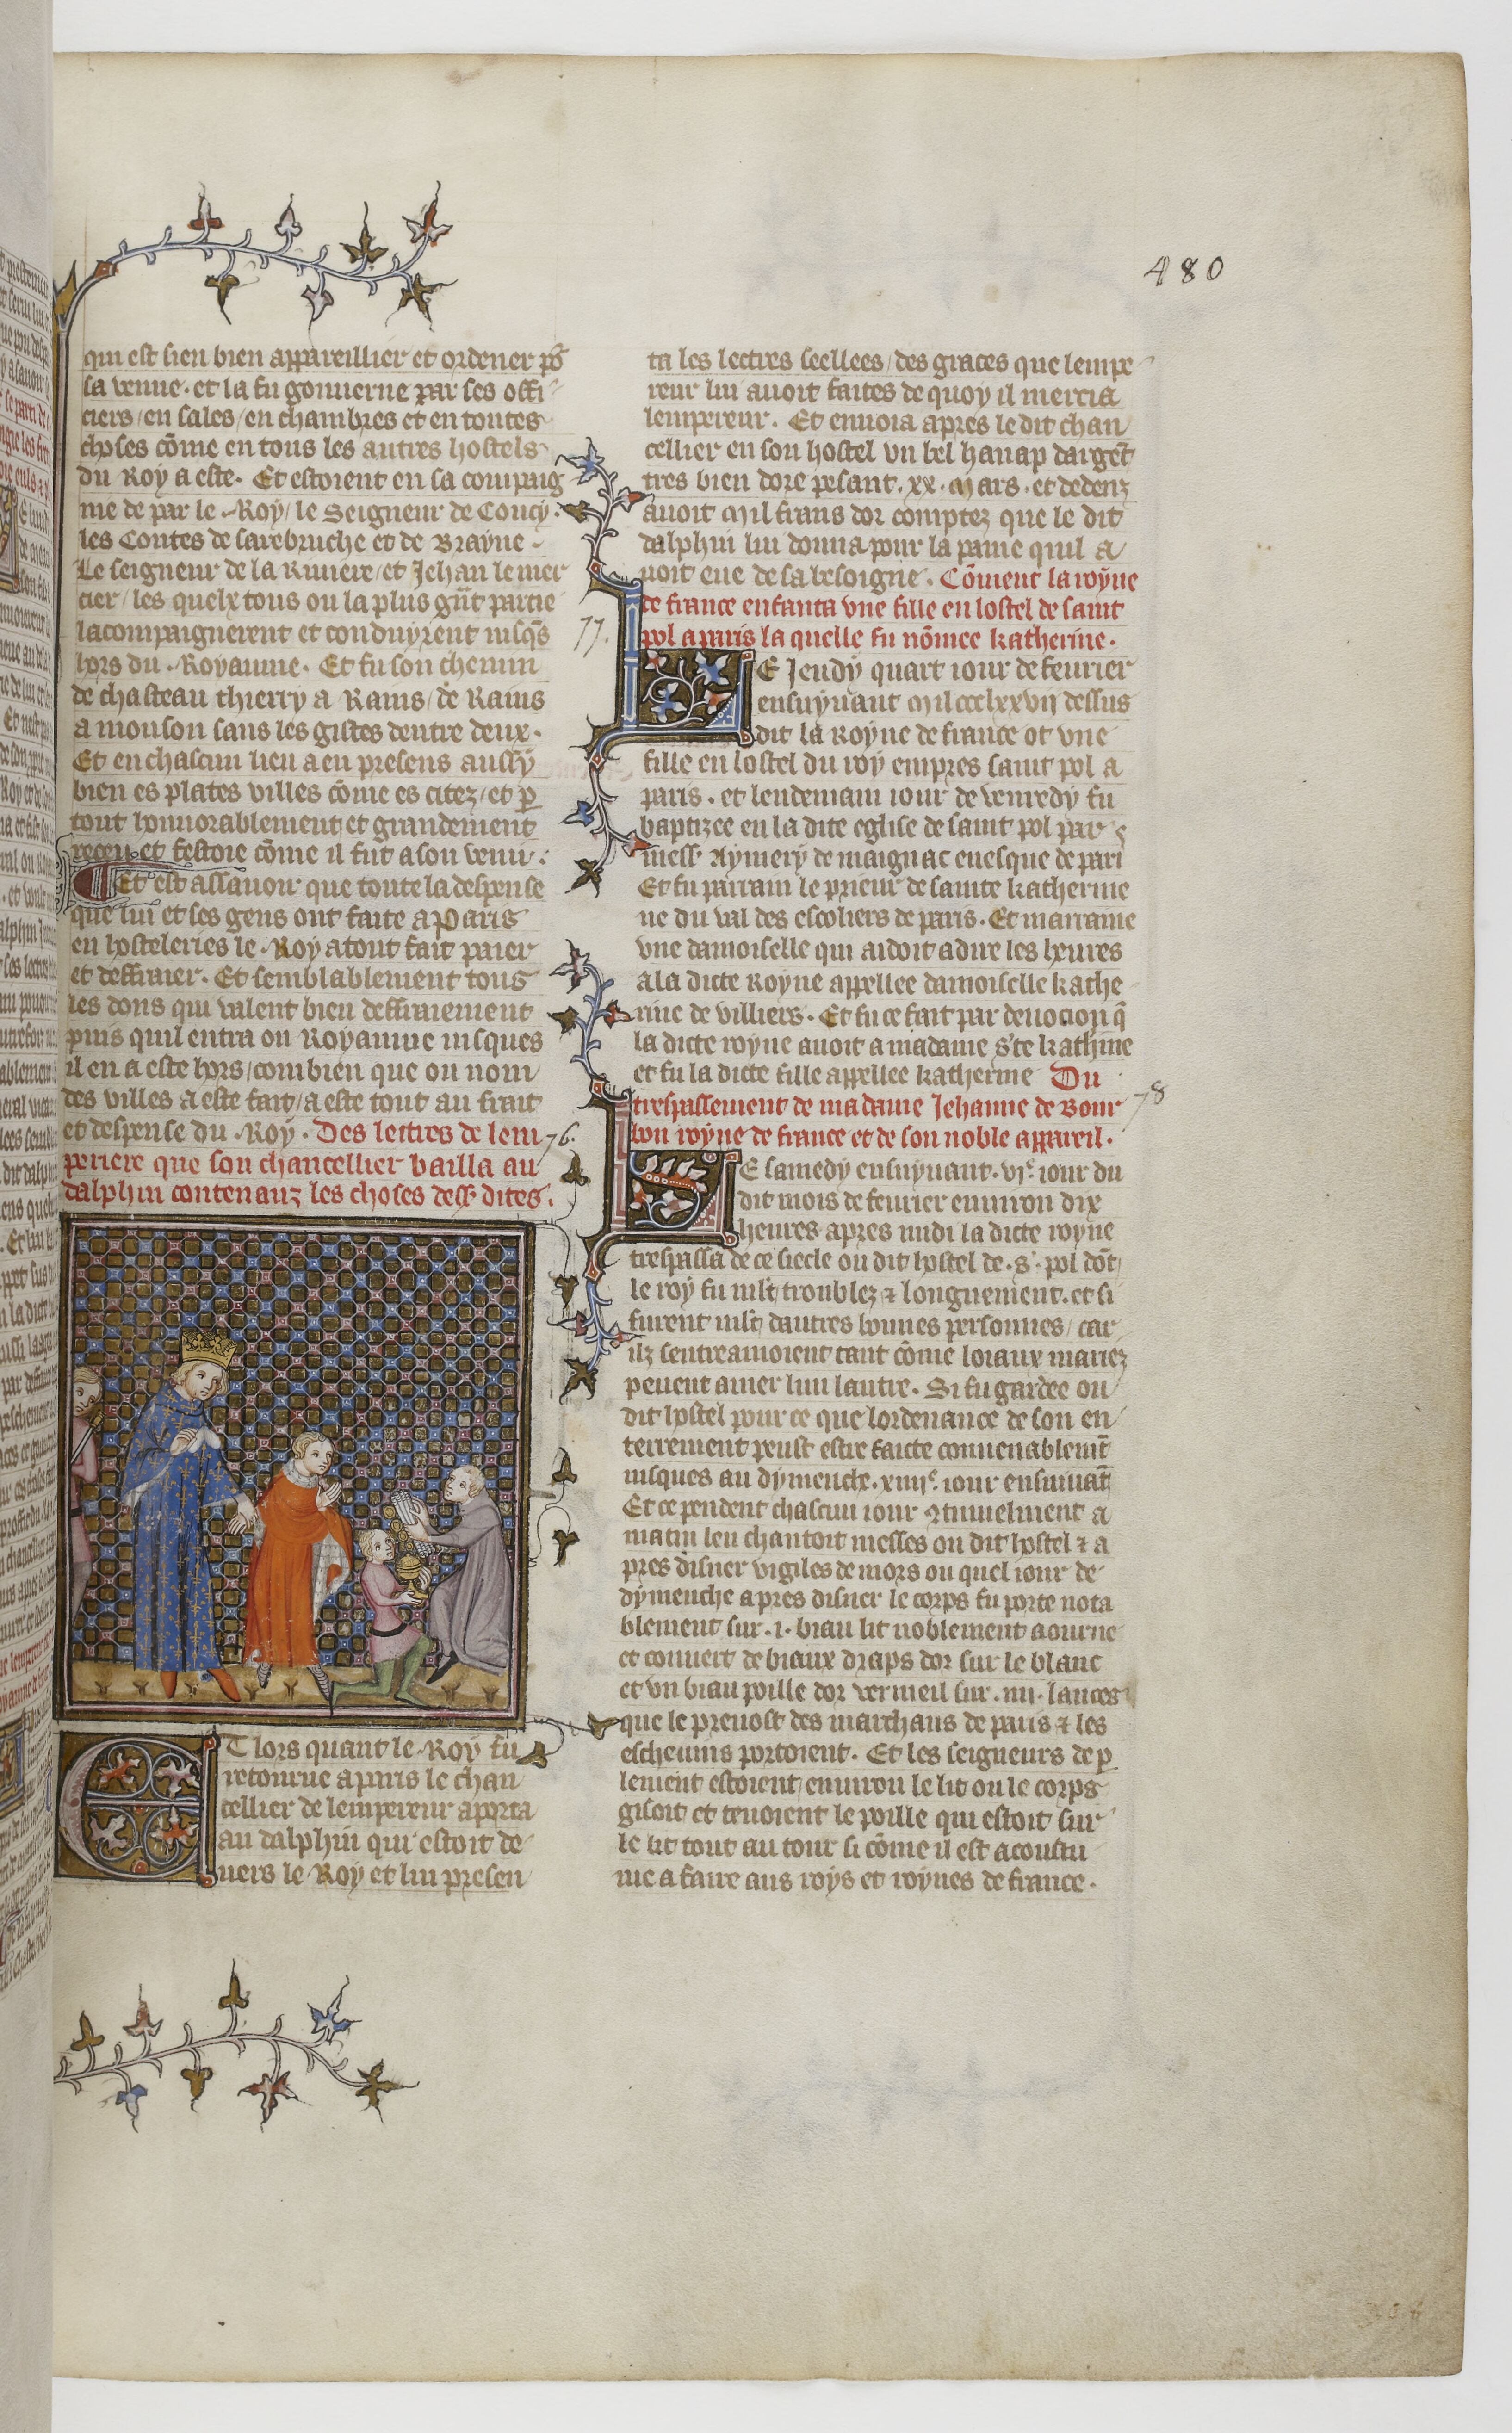 480
qui est sien bien appareillier et ordener po᷑
sa venue. et la fu gouuerne par ses offi
ciers / en sales / en chambres et en toutes
choses cõme en tous les autres hostels
du Roy a este. Et estoient en sa compaig
nie de par le Roy / le Seigneur de Coucy.
les Contes de sarebruche et de Brayne
Le seigneur de la Riuiere / et Jehan le mer
cier / les quelx tous ou la plus gñt partie
lacompaignerent et conduyrent iusq̃s
hors du Royaume. Et fu son chemin
de chasteau thierry a Rains / de Rains
a mouson sans les gistes dentre deux.
Et en chascun lieu a eu presens aussy
bien es plates villes cõme es citez / et ꝑ
tout honnorablement et grandement
receu et festoie cõme il fut a son venir.
Et est assauoir que toute la despense
que lui et ses gens ont faite a Paris
en hosteleries le Roy a tout fait paier
et deffraier. Et semblablement tous
les dons qui valent bien deffraiement
puis quil entra ou Royaume iusques
il en a este hors / combien que ou nom
des villes a este fait / a este tout au frait
et despense du Roy. Des lectres de lem
76.
periere que son chancellier bailla au
dalphin contenanz les choses dess. dites.
Et lors quant le Roy fu
retourne a paris le chan
cellier de lempereur aporta
au dalphin qui estoit de
uers le Roy et lui presen
ta les lectres seellees / des graces que lempe
reur lui auoit faites de quoy il mercia
lempereur. Et enuoia apres le dit chan
cellier en son hostel vn bel hanap dargẽt
tres bien dore pesant .xx. Mars. et dedenz
auoit Mil frans dor comptez que le dit
dalphin lui donna pour la paine quil a
uoit eue de sa besoigne. Cõment la royne
de france enfanta vne fille en lostel de saint
77.
pol a paris la quelle fu nõmee katherine.
Le Jeudy quart iour de feurier
ensuyuant Mil ccclxxvij dessus
dit la Royne de france ot vne
fille en lostel du roy empres saint pol a
paris. et lendemain iour de venredy fu
baptizee en la dite eglise de saint pol par
mess. Aymery de maignac euesque de pari s
Et fu parrain le prieur de sainte katherine
ne du val des escoliers de paris. Et marraine
vne damoiselle qui aidoit a dire les heures
a la dicte Royne appellee damoiselle kathe
rine de villiers. Et fu ce fait par deuocion q̃
la dicte royne auoit a madame ste kathine
et fu la dicte fille appellee katherine Du
78
trespassement de ma dame Jehanne de Bour
bon royne de france et de son noble appareil.
Le samedy ensuyuant. vje. iour du
dit mois de feurier enuiron dix
heures apres midi la dicte royne
trespassa de ce siecle ou dit hostel de .s. pol dõt
le roy fu mlt troublez ⁊ longuement. et si
furent mlt dautres bonnes personnes / car
ilz sentreamoient tant cõme loiaux mariez
peuent amer lun lautre. Si fu gardee ou
dit hostel pour ce que lordenance de son en
terrement peust estre faicte conuenablemt̃
iusques au dymenche. xiiije. iour ensuiuãt
Et ce pendent chascun iour 9tinuelment a
matin len chantoit messes ou dit hostel ⁊ a
pres disner vigiles de mors ou quel iour de
dymenche apres disner le corps fu porte nota
blement sur .i. biau lit noblement aourne
et couuert de biaux draps dor sur le blanc
et vn biau poille dor vermeil sur .iiii. lances
que le preuost des marchans de paris ⁊ les
escheuins portoient. Et les seigneurs de ꝑ
lement estoient enuiron le lit ou le corps
gisoit et tenoient le poille qui estoit sur
le lit tout au tour si cõme il est acoustu
me a faire aus roys et roynes de france.